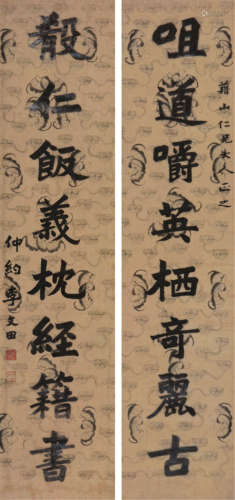 咀道嚼英栖奇麗古
仁兄大人正之
殽仁飯義枕經籍書
仲約李文田